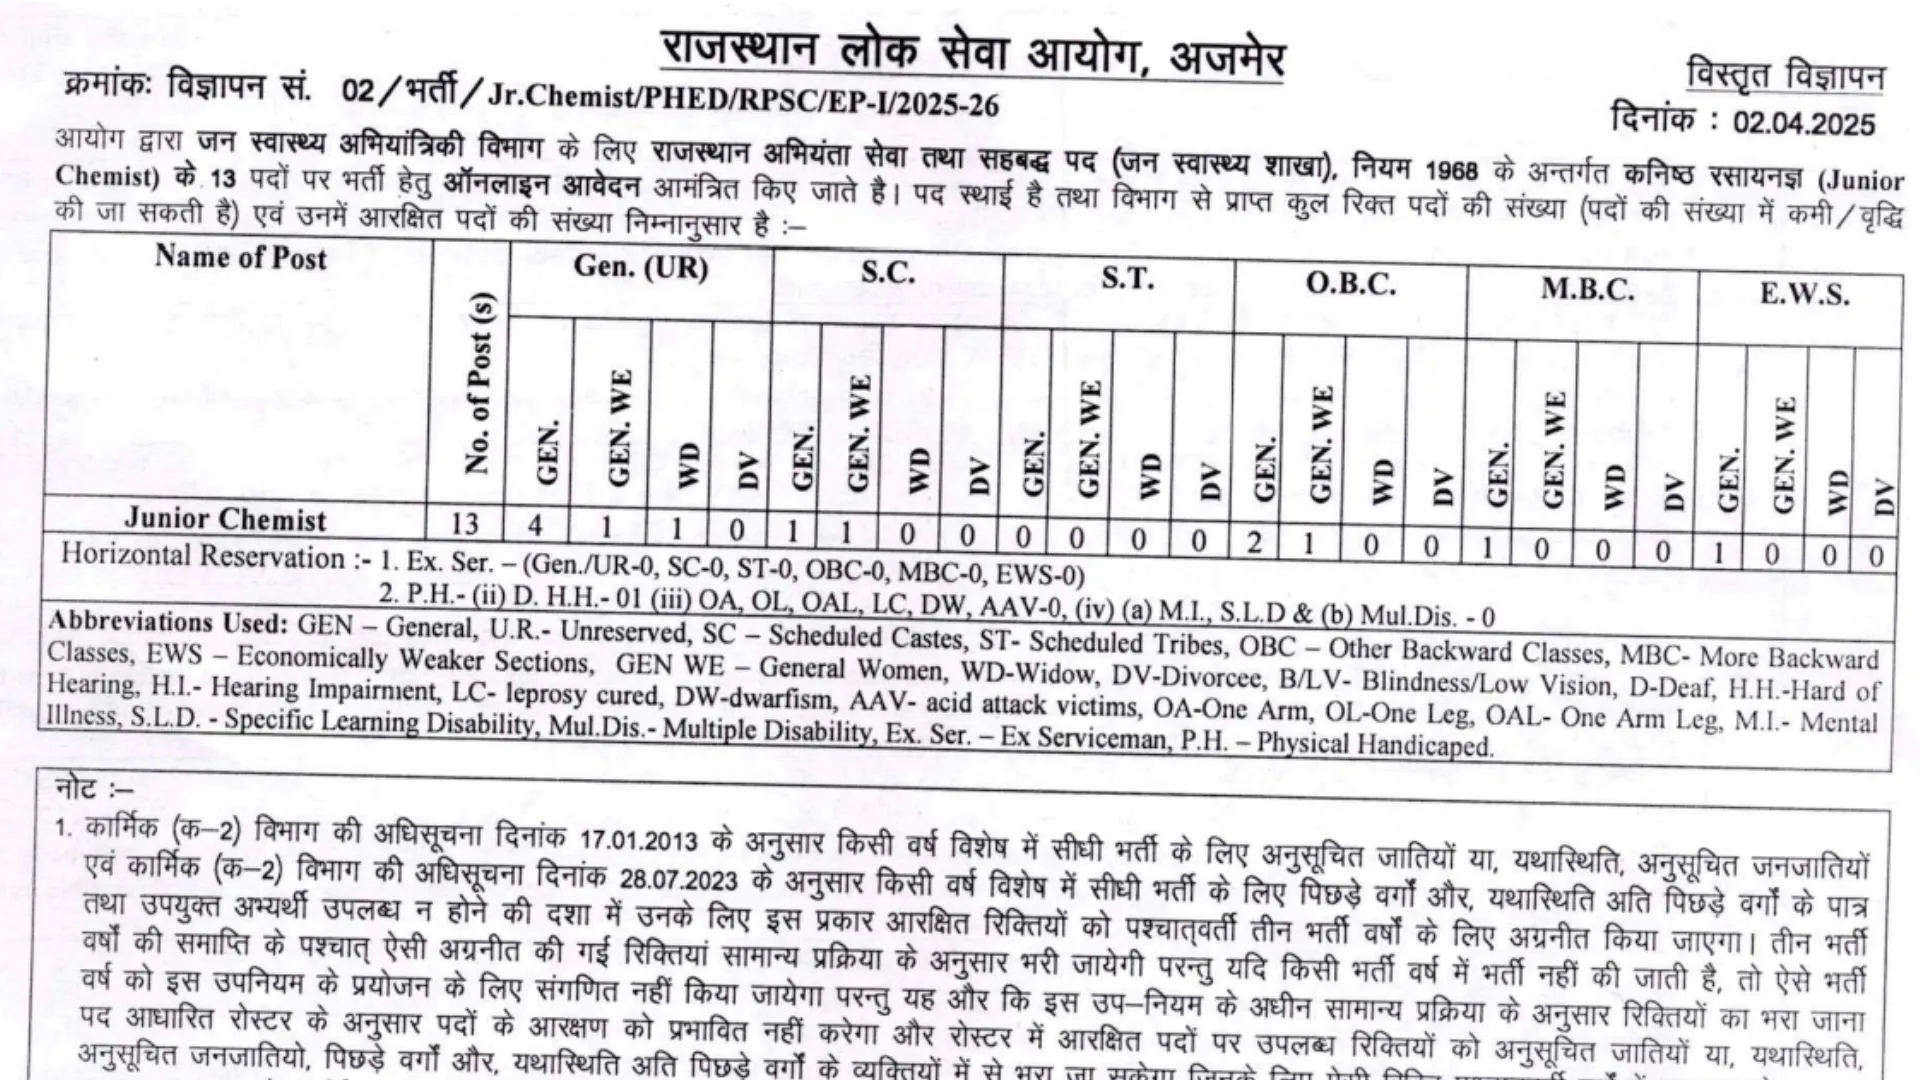 राजस्थान लोक सेवा आयोग, अजमेर
विस्तृत विज्ञापन
क्रमांकः विज्ञापन सं. 02/भर्ती/Jr.Chemist/PHED/RPSC/EP-I/2025-26
दिनांक : 02.04.2025
आयोग द्वारा जन स्वास्थ्य अभियांत्रिकी विभाग के लिए राजस्थान अभियंता सेवा तथा सहबद्ध पद (जन स्वास्थ्य शाखा), नियम 1968 के अन्तर्गत कनिष्ठ रसायनज्ञ (Junior
Chemist) के 13 पदों पर भर्ती हेतु ऑनलाइन आवेदन आमंत्रित किए जाते है। पद स्थाई है तथा विभाग से प्राप्त कुल रिक्त पदों की संख्या (पदों की संख्या में कमी/वृद्धि
की जा सकती है) एवं उनमें आरक्षित पदों की संख्या निम्नानुसार है :–
Name of Post No. of Post (s) Gen. (UR) S.C. S.T. O.B.C. M.B.C. E.W.S.
GEN. GEN. WE WD DV GEN. GEN. WE WD DV GEN. GEN. WE WD DV GEN. GEN. WE WD DV GEN. GEN. WE WD DV GEN. GEN. WE WD DV
Junior Chemist 13 4 1 1 0 1 1 0 0 0 0 0 0 2 1 0 0 1 0 0 0 1 0 0 0
Horizontal Reservation :- 1. Ex. Ser. – (Gen./UR-0, SC-0, ST-0, OBC-0, MBC-0, EWS-0)
2. P.H.- (ii) D. H.H.- 01 (iii) OA, OL, OAL, LC, DW, AAV-0, (iv) (a) M.I., S.L.D & (b) Mul.Dis. - 0
Abbreviations Used: GEN – General, U.R.- Unreserved, SC – Scheduled Castes, ST- Scheduled Tribes, OBC – Other Backward Classes, MBC- More Backward
Classes, EWS – Economically Weaker Sections, GEN WE – General Women, WD-Widow, DV-Divorcee, B/LV- Blindness/Low Vision, D-Deaf, H.H.-Hard of
Hearing, H.I.- Hearing Impairment, LC- leprosy cured, DW-dwarfism, AAV- acid attack victims, OA-One Arm, OL-One Leg, OAL- One Arm Leg, M.I.- Mental
Illness, S.L.D. - Specific Learning Disability, Mul.Dis.- Multiple Disability, Ex. Ser. – Ex Serviceman, P.H. – Physical Handicaped.
नोट :–
1. कार्मिक (क–2) विभाग की अधिसूचना दिनांक 17.01.2013 के अनुसार किसी वर्ष विशेष में सीधी भर्ती के लिए अनुसूचित जातियों या, यथास्थिति, अनुसूचित जनजातियों
एवं कार्मिक (क–2) विभाग की अधिसूचना दिनांक 28.07.2023 के अनुसार किसी वर्ष विशेष में सीधी भर्ती के लिए पिछड़े वर्गों और, यथास्थिति अति पिछड़े वर्गों के पात्र
तथा उपयुक्त अभ्यर्थी उपलब्ध न होने की दशा में उनके लिए इस प्रकार आरक्षित रिक्तियों को पश्चात्वर्ती तीन भर्ती वर्षों के लिए अग्रनीत किया जाएगा। तीन भर्ती
वर्षों की समाप्ति के पश्चात् ऐसी अग्रनीत की गई रिक्तियां सामान्य प्रक्रिया के अनुसार भरी जायेगी परन्तु यदि किसी भर्ती वर्ष में भर्ती नहीं की जाती है, तो ऐसे भर्ती
वर्ष को इस उपनियम के प्रयोजन के लिए संगणित नहीं किया जायेगा परन्तु यह और कि इस उप–नियम के अधीन सामान्य प्रक्रिया के अनुसार रिक्तियों का भरा जाना
पद आधारित रोस्टर के अनुसार पदों के आरक्षण को प्रभावित नहीं करेगा और रोस्टर में आरक्षित पदों पर उपलब्ध रिक्तियों को अनुसूचित जातियों या, यथास्थिति,
अनुसूचित जनजातियो, पिछड़े वर्गों और, यथास्थिति अति पिछड़े वर्गों के व्यक्तियों में से भरा जा सकेगा जिनके लिए ऐसी